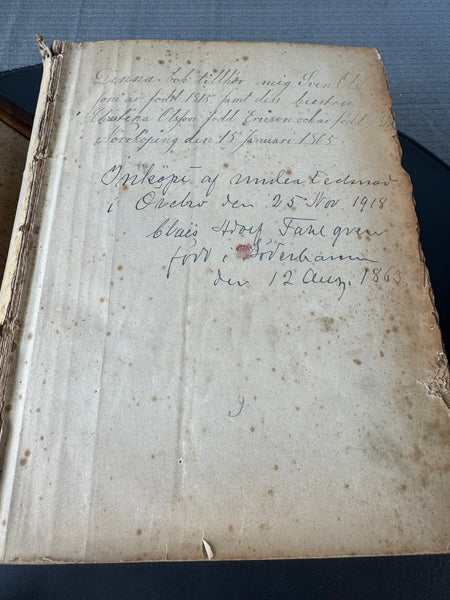 Denna bok tillhör mig Sven Ols
som är född 1815 samt dess hustru
Christina Olsson född Ericson och är född
Norrköping den 15 Januari 1865
Inköpt af undertecknad
i Örebro den 25 Nov. 1918
Claës Adolf Fahlgren
född i Söderhamn
den 12 Aug. 1863
9